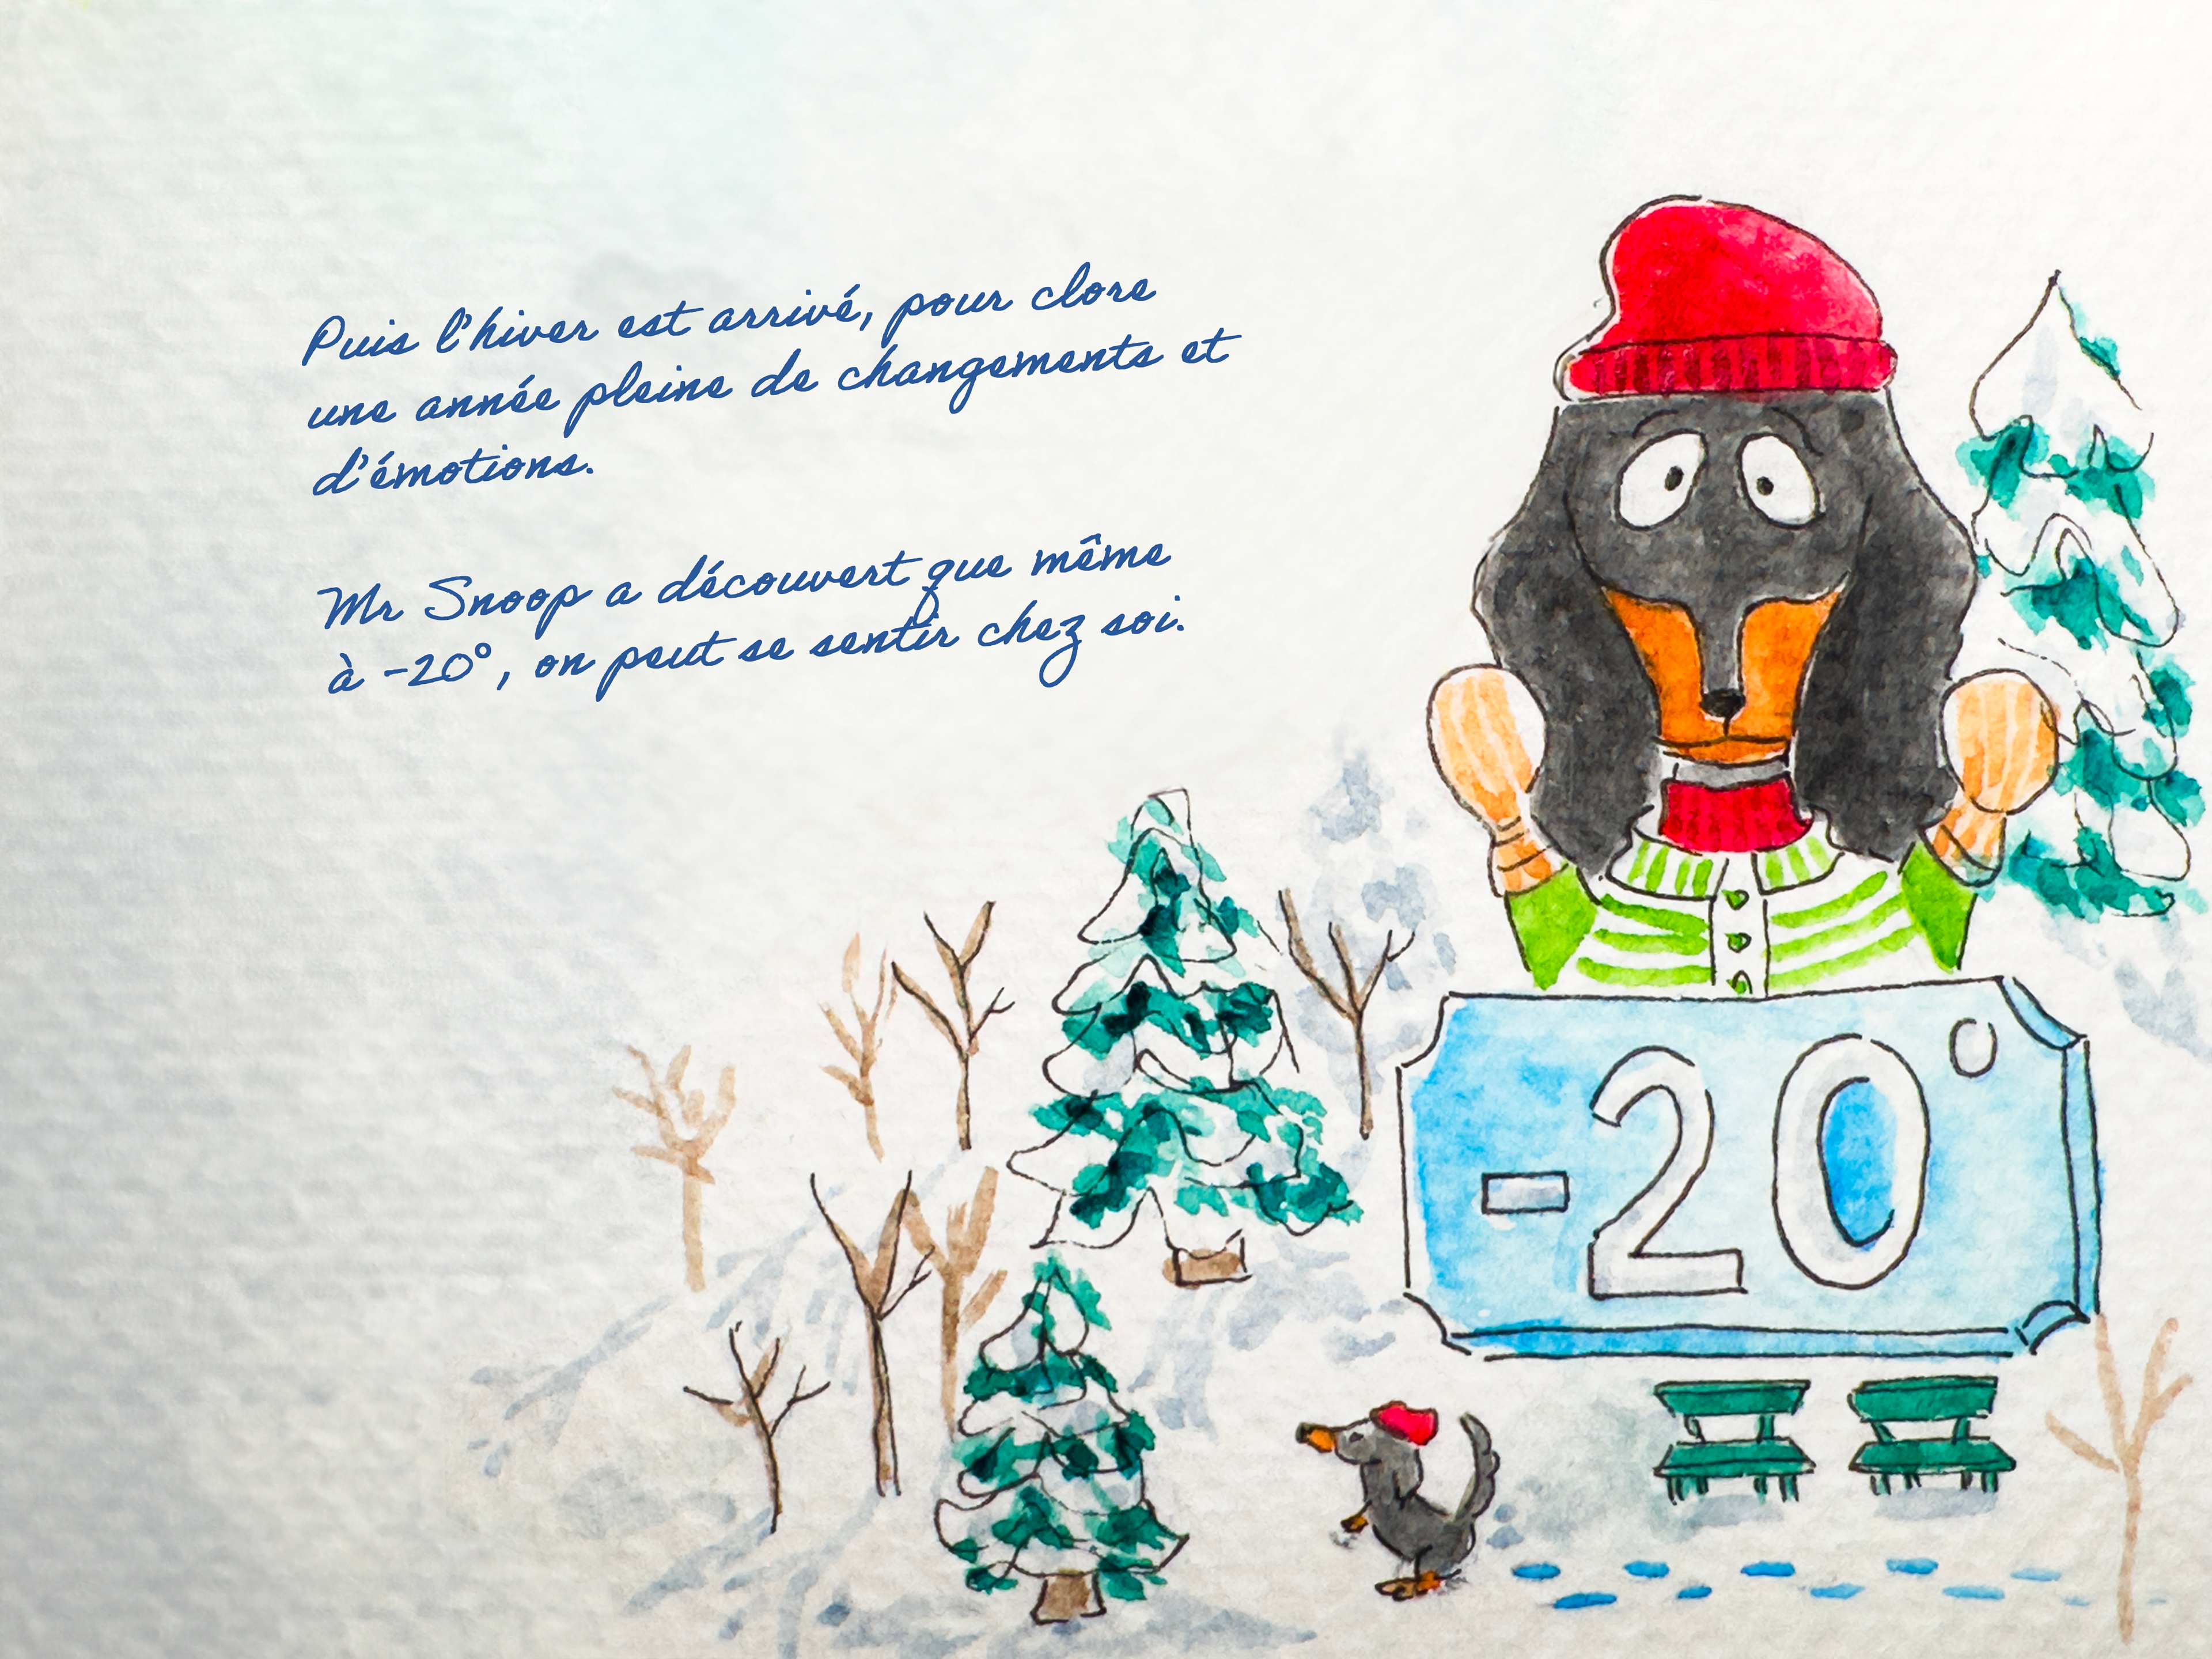 Puis l'hiver est arrivé, pour clore
une année pleine de changements et
d'émotions.
Mr Snoop a découvert que même
à -20°, on peut se sentir chez soi.
-20°